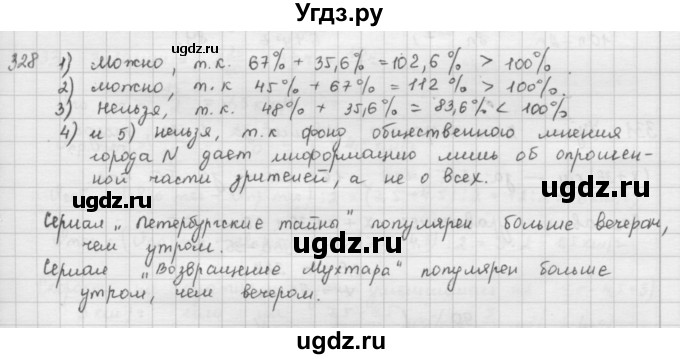 Угдз.ру
328 1) Можно, т.к. 67% + 35,6% = 102,6% > 100%.
2) можно, т.к 45% + 67% = 112% > 100%.
3) нельзя, т.к. 48% + 35,6% = 83,6% < 100%
4) и 5) нельзя, т.к фонд общественного мнения
города N дает информацию лишь об опрошен-
ной части зрителей, а не о всех.
Сериал „Петербургские тайны" популярен больше вечером,
чем утром.
Сериал „Возвращение Мухтара" популярен больше
утром, чем вечером.
ugdz.ru
ugdz.ru
ugdz.ru
ugdz.ru
ugdz.ru
ugdz.ru
ugdz.ru
ugdz.ru